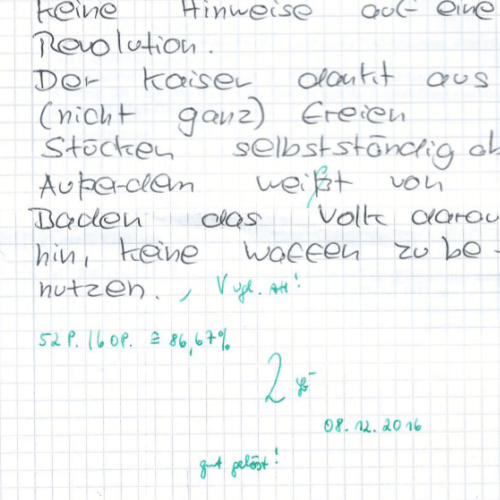 keine Hinweise auf eine
Revolution.
Der Kaiser dankt aus
(nicht ganz) freien
Stücken selbstständig ab
Außerdem weißt von
Baden das Volk darau
hin, keine Waffen zu be-
nutzen. , V vgl. AH!
52 P. / 60 P. ≙ 86,67%
2
08.12.2016
gut gelöst!